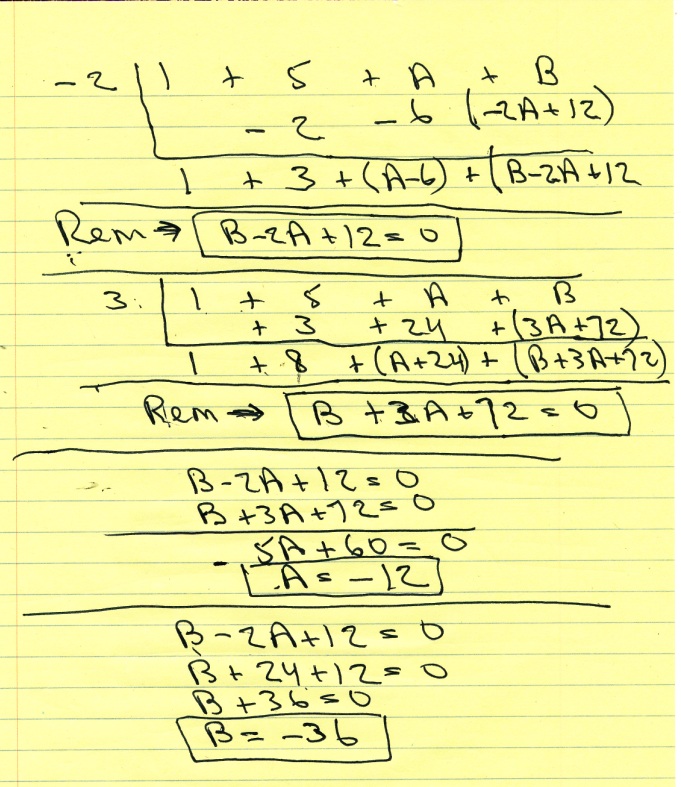 -2 | 1 + 5 + A + B
- 2 - 6 (-2A+12)
1 + 3 + (A-6) + (B-2A+12
Rem → B-2A+12=0
3 | 1 + 5 + A + B
+ 3 + 24 + (3A+72)
1 + 8 + (A+24) + (B+3A+72)
Rem → B+3A+72=0
B-2A+12=0
B+3A+72=0
- 5A+60=0
A=-12
B-2A+12=0
B+24+12=0
B+36=0
B=-36